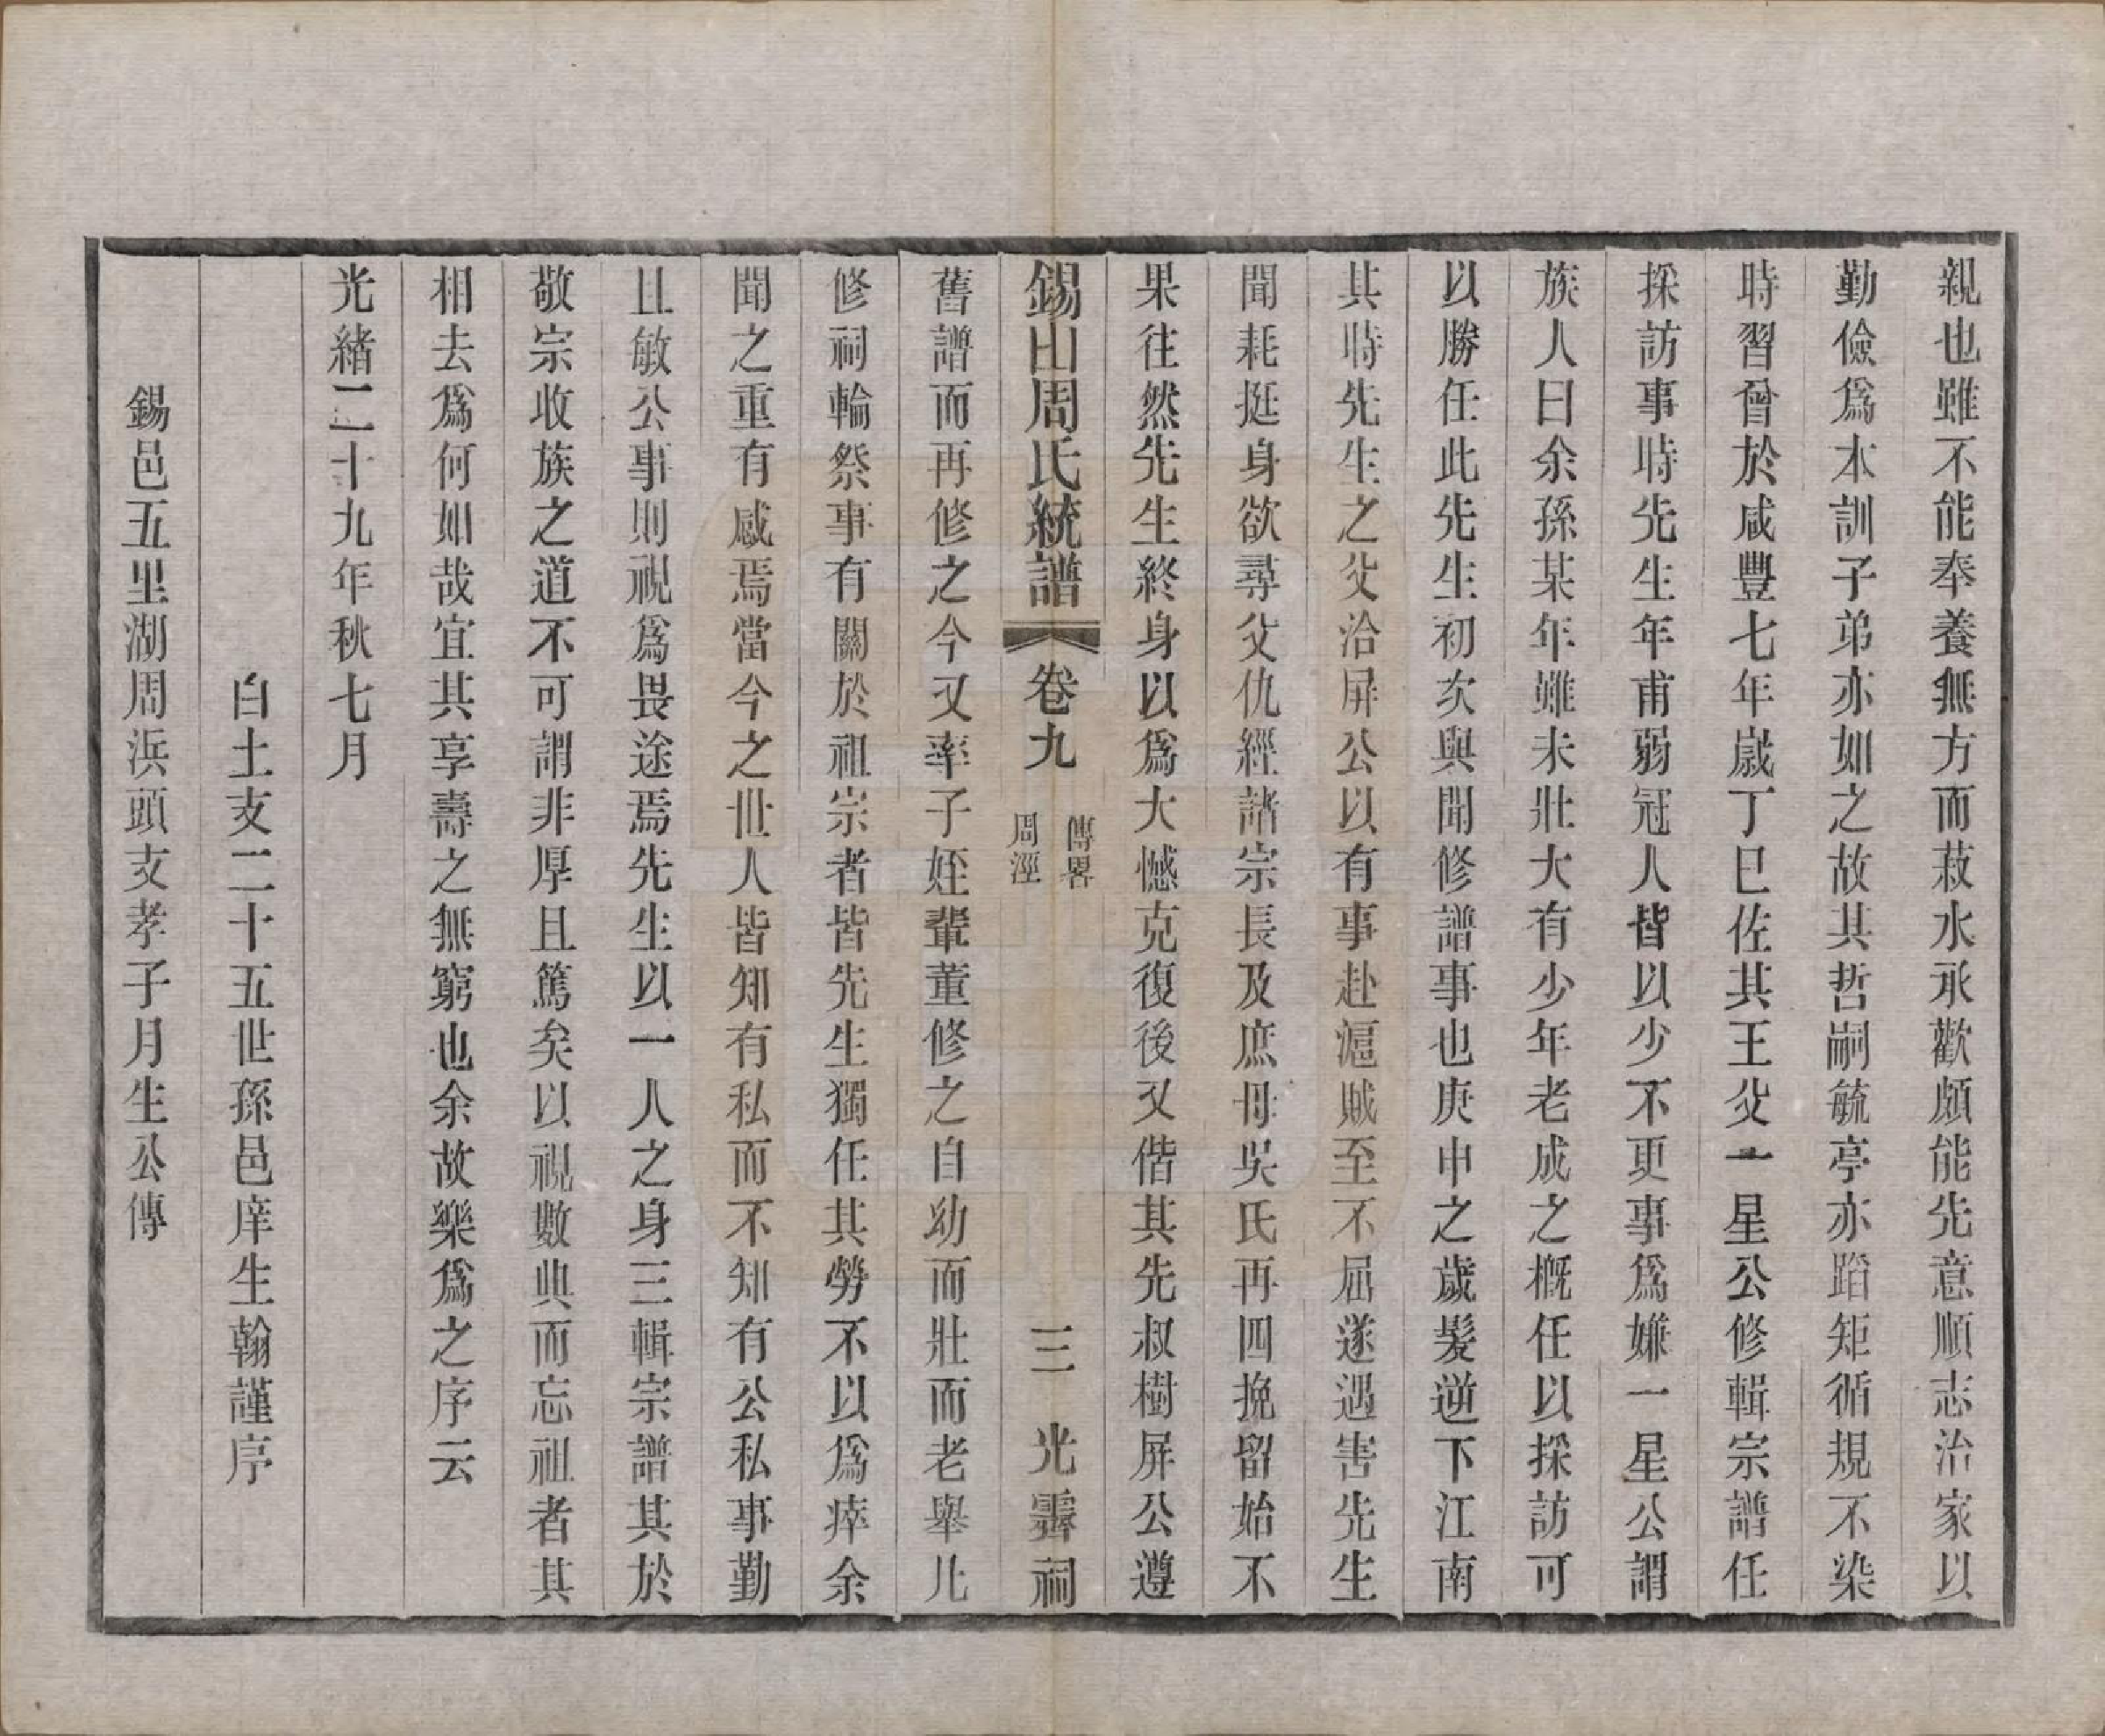 親也雖不能奉養無方而菽水承歡頗能先意順志治家以
勤儉爲本訓子弟亦如之故其哲嗣毓亭亦蹈矩循規不染
時習曾於咸豐七年歲丁巳佐其王父一星公修輯宗譜任
採訪事時先生年甫弱冠人皆以少不更事爲嫌一星公謂
族人曰余孫某年雖未壯大有少年老成之概任以採訪可
以勝任此先生初次與聞修譜事也庚申之歲髮逆下江南
其時先生之父洽屏公以有事赴滬賊至不屈遂遇害先生
聞耗挺身欲尋父仇經諸宗長及庶母吳氏再四挽留始不
果往然先生終身以爲大憾克復後又偕其先叔樹屏公遵
錫山周氏統譜 卷九 傳畧 周涇 三 光霽祠
舊譜而再修之今又率子姪輩董修之自幼而壯而老舉凡
修祠輪祭事有關於祖宗者皆先生獨任其勞不以爲瘁余
聞之重有感焉當今之世人皆知有私而不知有公私事勤
且敏公事則視爲畏途焉先生以一人之身三輯宗譜其於
敬宗收族之道不可謂非厚且篤矣以視數典而忘祖者其
相去爲何如哉宜其享壽之無窮也余故樂爲之序云
光緒二十九年秋七月
白土支二十五世孫邑庠生翰謹序
錫邑五里湖周浜頭支孝子月生公傳